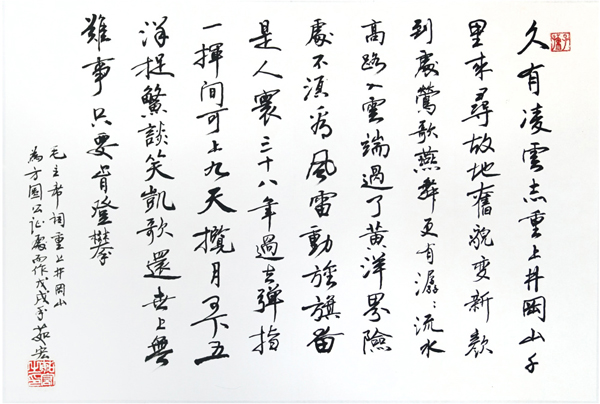 久有凌雲志重上井岡山千
里來尋故地舊貌變新顏
到處鶯歌燕舞更有潺々流水
高路入雲端過了黃洋界險
處不須看風雷動旌旗奮
是人寰三十八年過去彈指
一揮間可上九天攬月可下五
洋捉鱉談笑凱歌還世上無
難事只要肯登攀
毛主席詞重上井岡山
為方圓公证處而作戊戌年茹宏